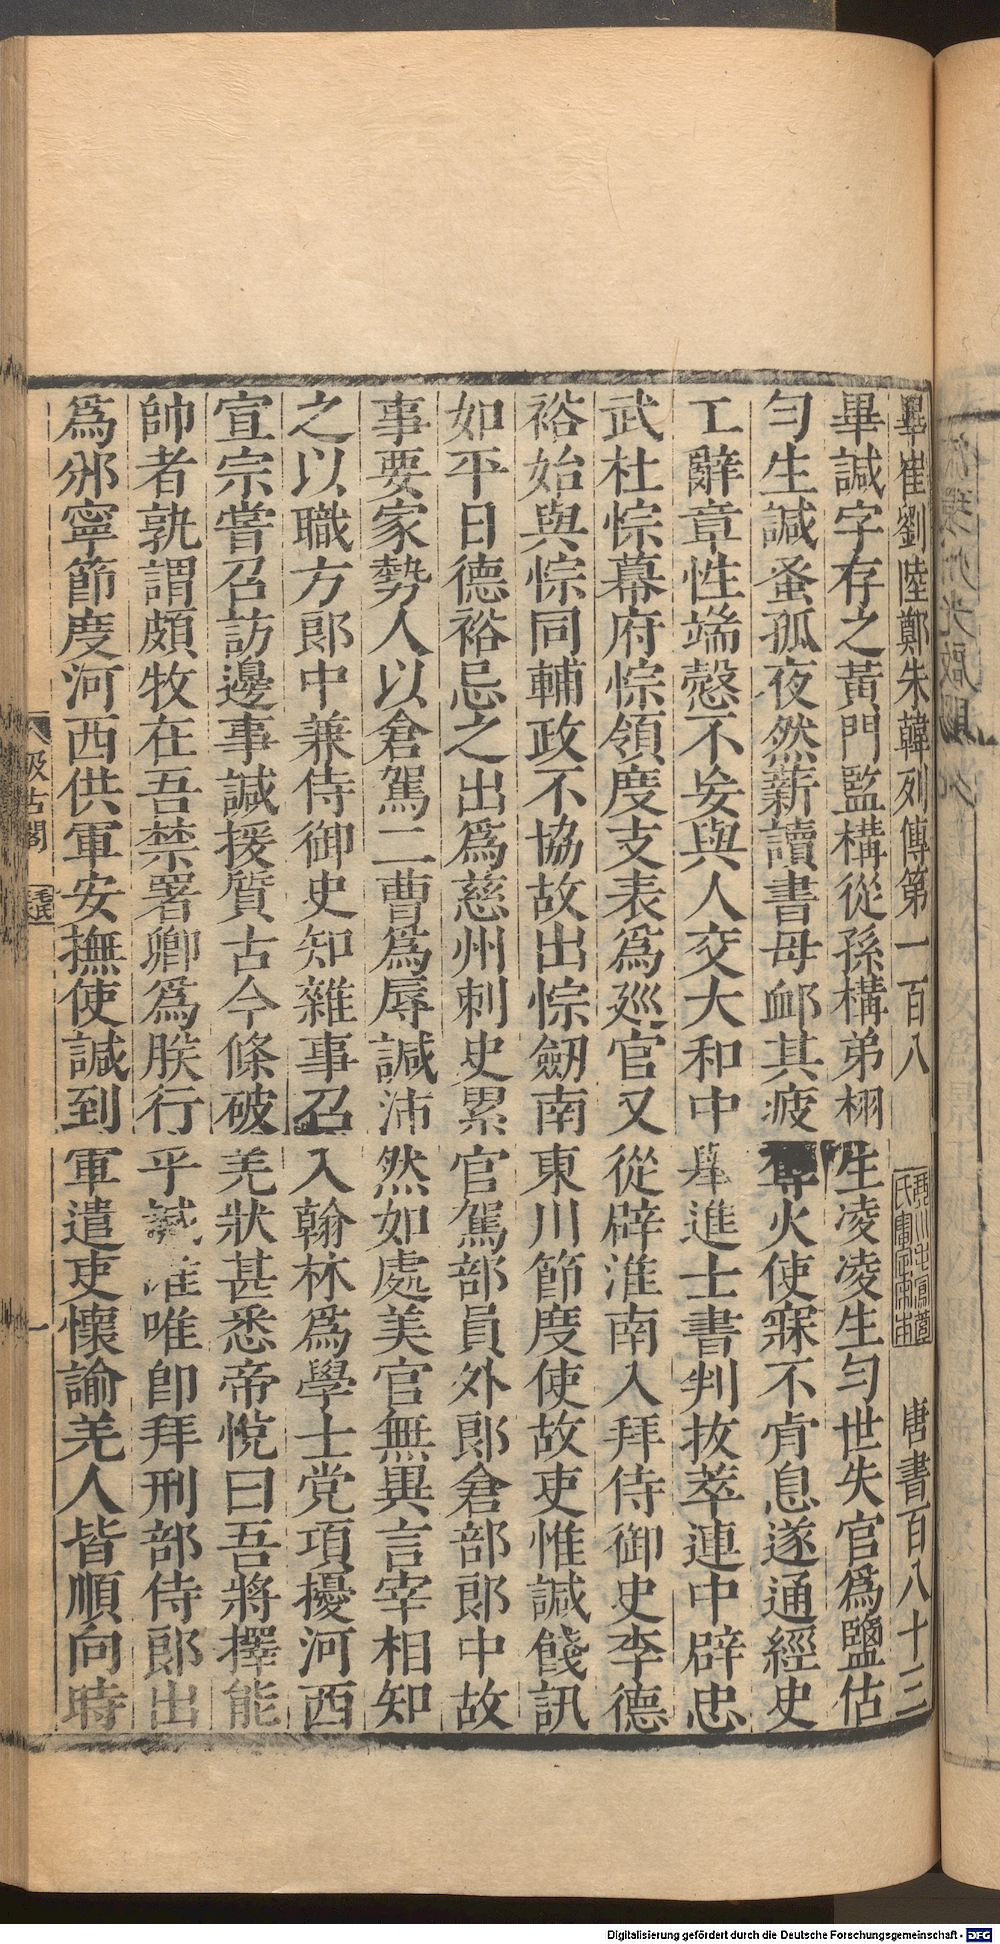 畢崔劉陸鄭朱韓列傳第一百八 唐書百八十三
畢諴字存之黃門監構從孫構弟栩生凌凌生勻世失官爲鹽估
勻生諴蚤孤夜然薪讀書母䘏其疲奪火使寐不肯息遂通經史
工辭章性端愨不妄與人交大和中舉進士書判拔萃連中辟忠
武杜悰幕府悰領度支表爲巡官又從辟淮南入拜侍御史李德
裕始與悰同輔政不協故出悰劒南東川節度使故吏惟諴餞訊
如平日德裕忌之出爲慈州刺史累官駕部員外郎倉部郎中故
事要家勢人以倉駕二曹爲辱諴沛然如處美官無異言宰相知
之以職方郎中兼侍御史知雜事召入翰林爲學士党項擾河西
宣宗嘗召訪邊事諴援質古今條破羌狀甚悉帝悅曰吾將擇能
帥者孰謂頗牧在吾禁署卿爲朕行乎諴唯唯卽拜刑部侍郎出
爲邠寧節度河西供軍安撫使諴到軍遣吏懷諭羌人皆順向時
汲古閣 毛氏 一
Digitalisierung gefördert durch die Deutsche Forschungsgemeinschaft - DFG